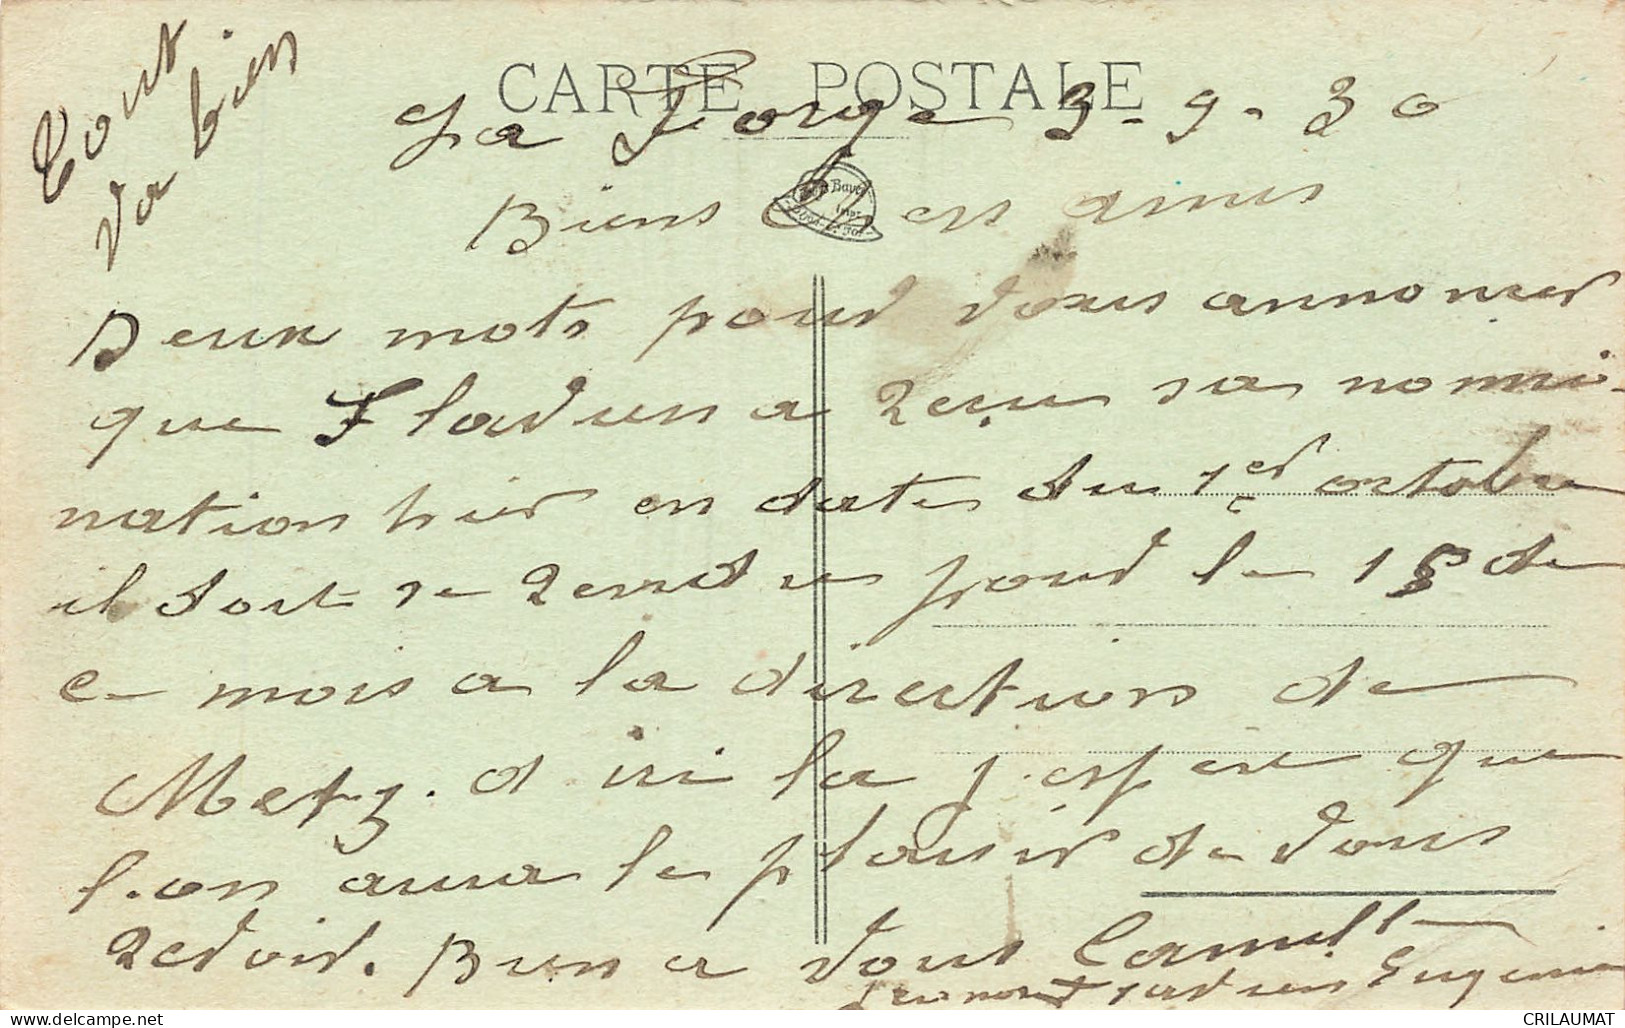 Tout
va bien
CARTE POSTALE
La Forge 3-9-30
Biens chers amis
Deux mots pour vous annoncer
que Fladien a reçu sa nomi-
nation hier en date du 1er octobre
il doit se rendre pour le 15 de
ce mois a la direction de
Metz. d'ici la j'espere que
l'on aura le plaisir de vous
revoir. Bien a vous Camille
Eugenie
CRILAUMAT